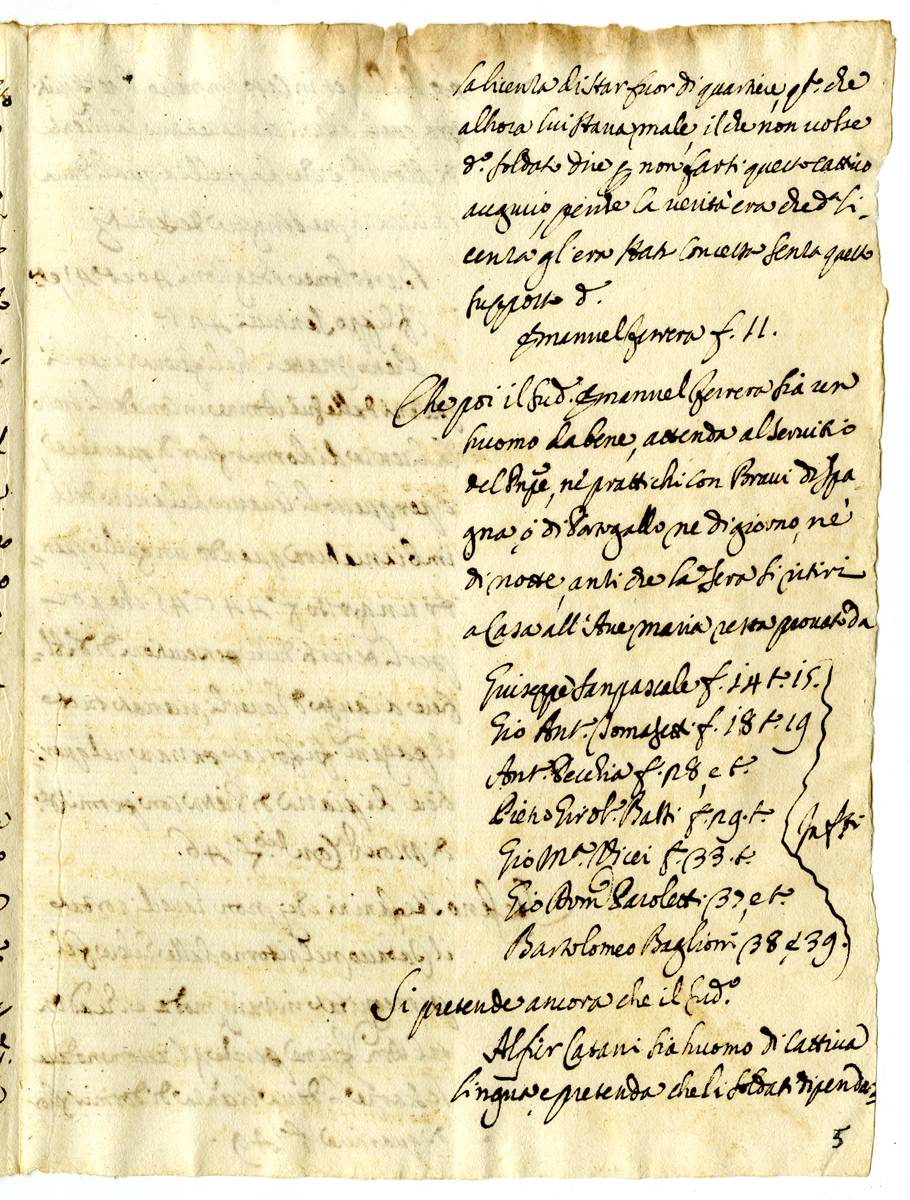 la licenza di star fuor di quartiere, p.che
allhora lui stava male, il che non volse
d.o soldato dire p non farti questo cattivo
augurio, perche la verità era che d.a li-
cenza gl'era stata concessa senza questo
supposto d.
Emanuel Ferrera f. 11.
Che poi il Sud. Emanuel Ferrera sia un
huomo da bene, attenda al servitio
del Pnpe, ne prattichi con Bravi di Spa
gna, ò di Portogallo ne di giorno, ne
di notte, anti che la sera si ritiri
a Casa all'Ave maria resta provato da
Guiseppe Sanpascale f. 14 t. 15.
Gio Ant. Tomasetti f. 18 t. 19
Ant. Pecchia f. 28 e t.
Pietro Girol. Balti f. 29. t.
Gio M.a Vicei f. 33. t.
Gio Dom Paroletti 37 e t.
Bartolomeo Baglioni 38 e 39.
Si pretende ancora che il Sud.o
Alfier Catani sia huomo di cattiva
lingua, e pretenda che li soldati dipenda=
5